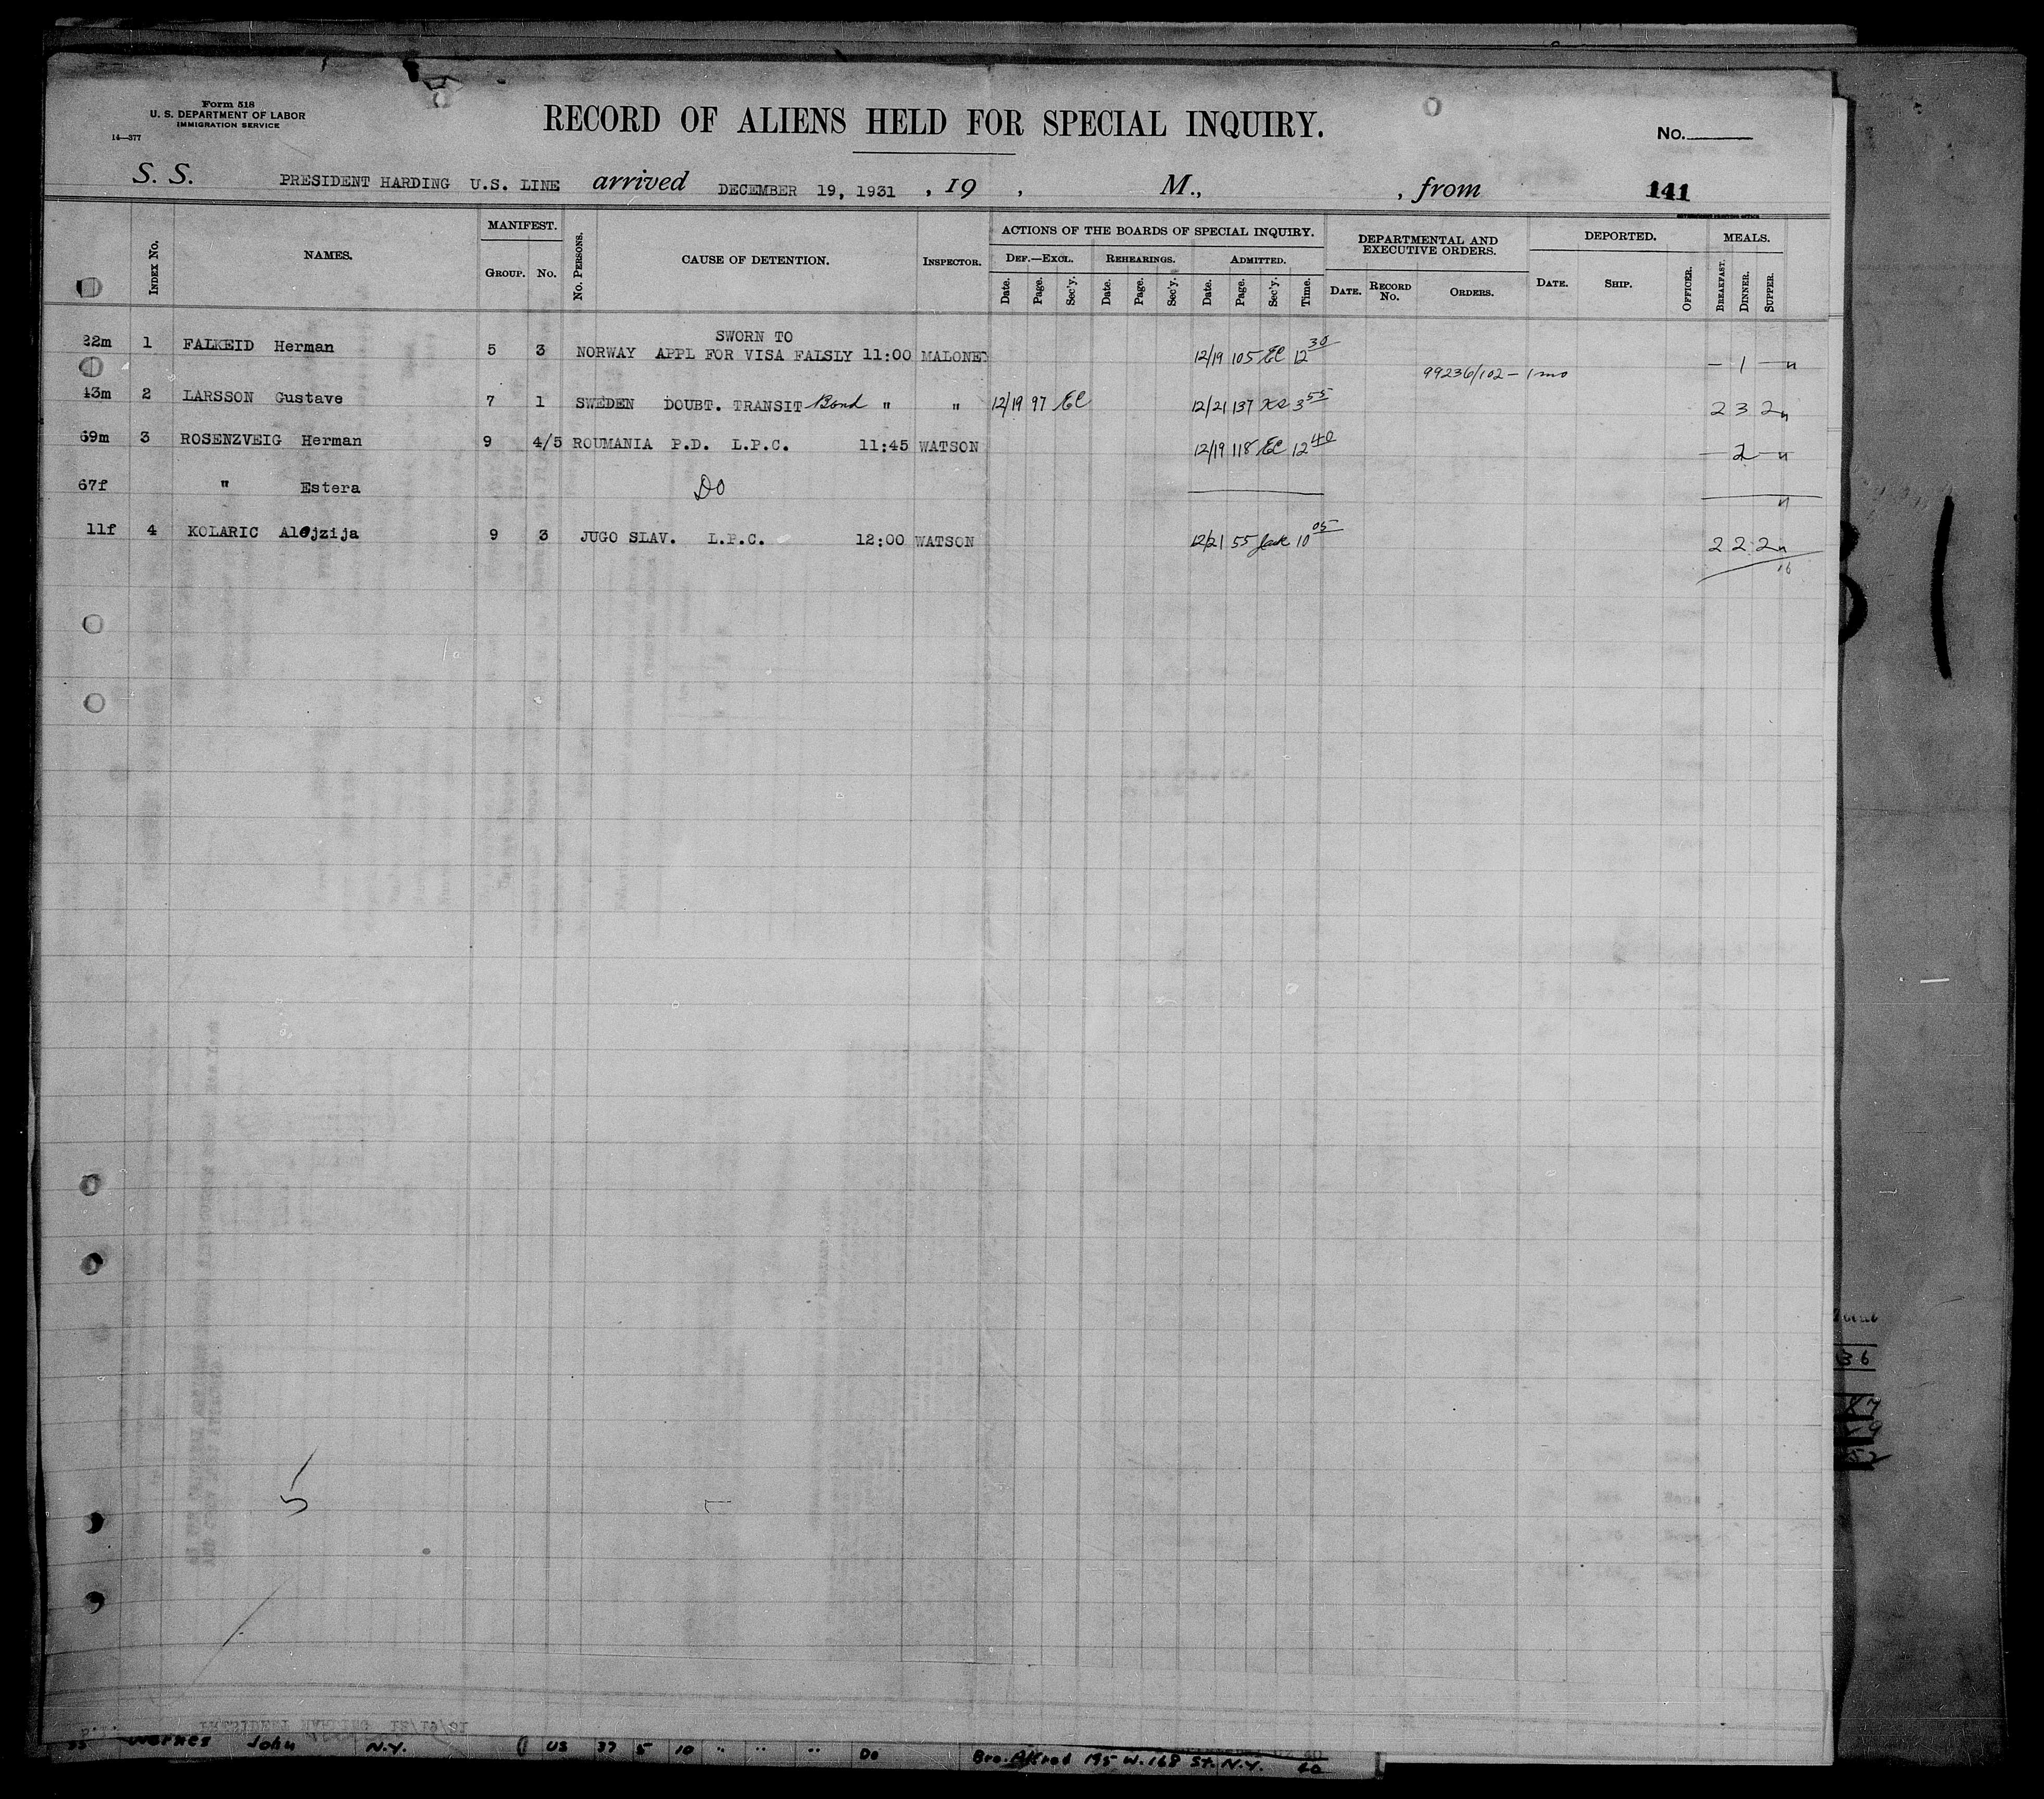 Form 518
U. S. DEPARTMENT OF LABOR
IMMIGRATION SERVICE
14—377
RECORD OF ALIENS HELD FOR SPECIAL INQUIRY.
No.
S. S. PRESIDENT HARDING U.S. LINE arrived DECEMBER 19, 1931 , 19 , M., , from 141
INDEX No. NAMES. MANIFEST. GROUP. No. No. PERSONS. CAUSE OF DETENTION. INSPECTOR.
ACTIONS OF THE BOARDS OF SPECIAL INQUIRY. DEF.—EXCL. REHEARINGS. ADMITTED.
Date. Page. Sec'y. Date. Page. Sec'y. Date. Page. Sec'y. Time.
DEPARTMENTAL AND EXECUTIVE ORDERS. DATE. RECORD No. ORDERS.
DEPORTED. DATE. SHIP. OFFICER.
MEALS. BREAKFAST. DINNER. SUPPER.
SWORN TO
22m 1 FALKEID Herman 5 3 NORWAY APPL FOR VISA FALSLY 11:00 MALONEY 12/19 105 EC 12 30 — 1 — n
99236/102 – 1 mo
43m 2 LARSSON Gustave 7 1 SWEDEN DOUBT. TRANSIT Bond " " 12/19 97 EC 12/21 137 3 55 2 3 2 n
69m 3 ROSENZVEIG Herman 9 4/5 ROUMANIA P.D. L.P.C. 11:45 WATSON 12/19 118 EC 12 40 — 2 — n
67f " Estera DO n
11f 4 KOLARIC Alojzija 9 3 JUGO SLAV. L.P.C. 12:00 WATSON 12/21 55 10 05 2 2 2 n
16
5
PRESIDENT HARDING 12/19/31
Werner John N.Y. US 37 5 10 " " " Do Bro. Alfred 195 W. 168 St. N.Y.
36
87